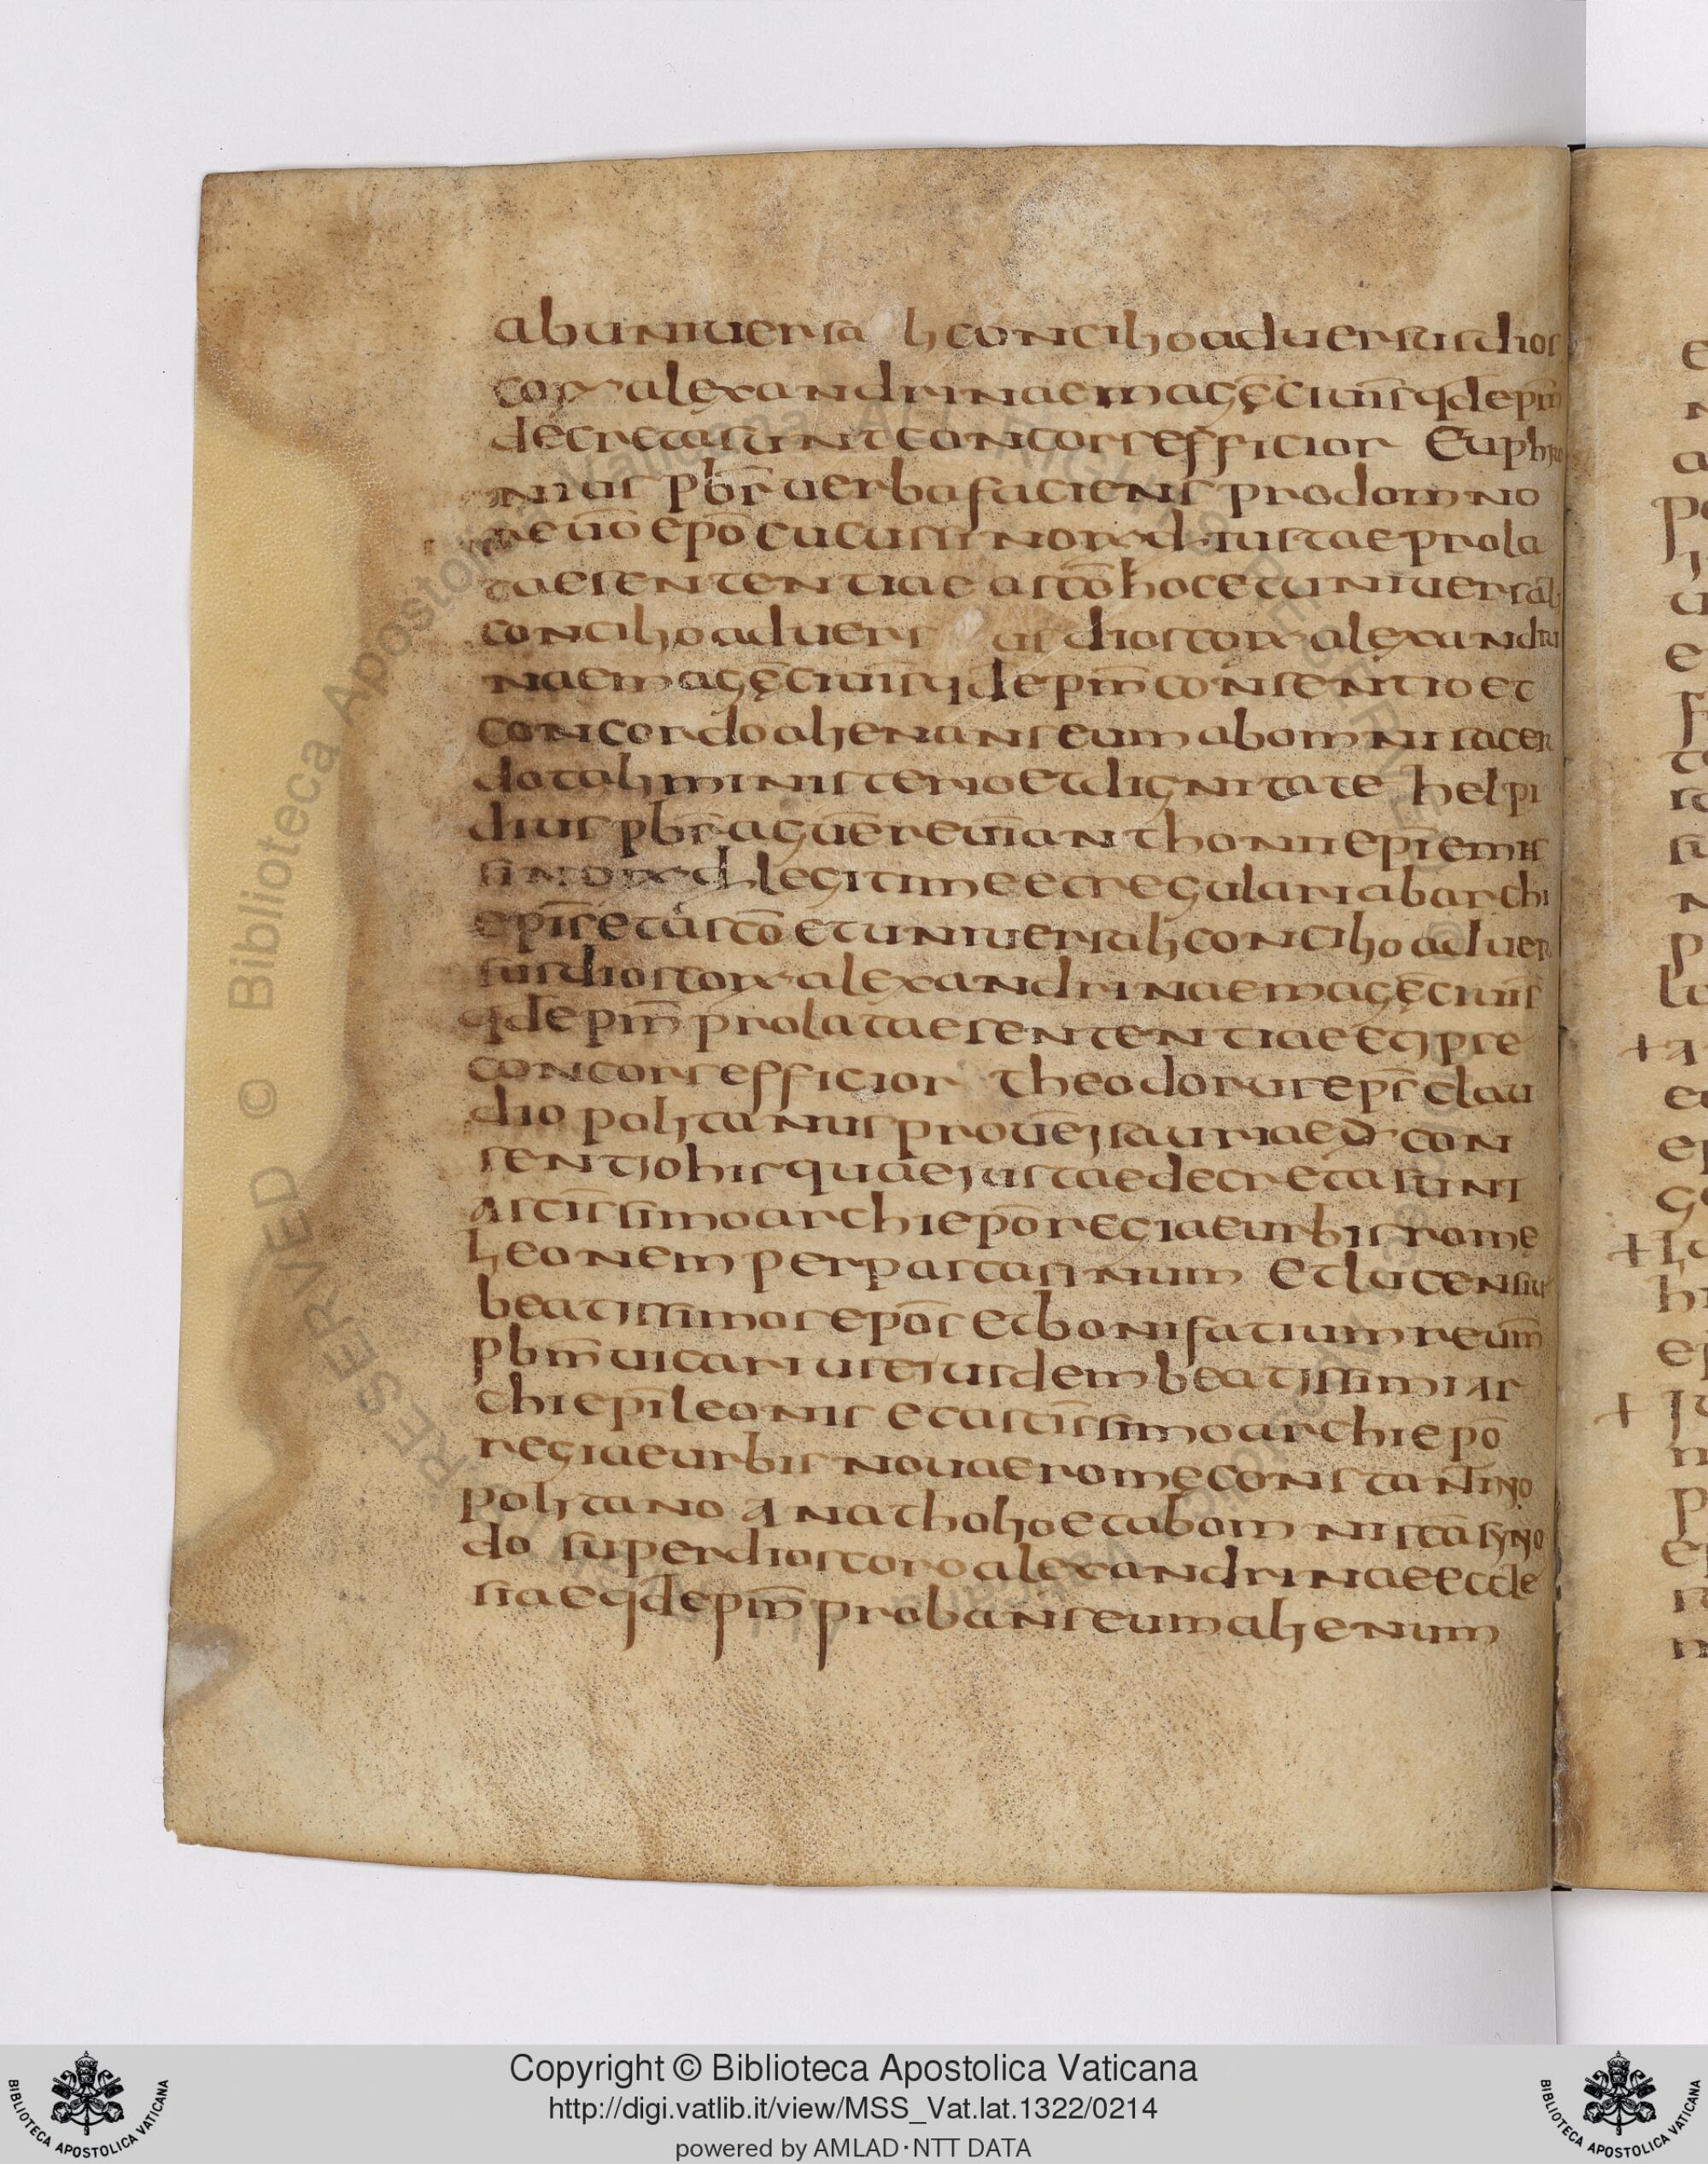 ab uniuersa li concilio aduersus dios
cor alexandrinae magę ciuit̄s qd̄ ep̄m
decreta sunt concors efficior Euphro
nius pb̄r uerba faciens pro domno
reūo ep̄o cucusi nox d iustae prola
tae sententiae a sc̄o hoc et uniuersali
concilio aduers us dioscor alexandri
nae magę ciuit̄s qd̄ ep̄m consentio et
concordo alienans eum ab omni sacer
dotali ministerio et dignitate helpi
dius pb̄r aguēreuī anthonii ep̄i emis
sinox d legitime et regulari ab archi
ep̄is et a sc̄o et uniuersali concilio aduer
sus dioscor alexandrinae magę ciuit̄s
qd̄ ep̄m prolatae sententiae et ipse
concors efficior theodorus ep̄s clau
diopolitanus prouē isauriae d con
sentio his quae iustae decreta sunt
a sc̄issimo archiep̄o regiae urbis rome
leonem per pascasinum et lucensiu
beatissimos ep̄os et bonifatium reūm
pb̄m uicarius eiusdem beatissimi ar
chiep̄i leonis et a sc̄issimo archiep̄o
regiae urbis nouae romę constantino
politano anatholio et ab omni sc̄a syno
do super dioscoro alexandrinae eccle
siae qd̄ ep̄m probans eum alienum
Copyright © Biblioteca Apostolica Vaticana
http://digi.vatlib.it/view/MSS_Vat.lat.1322/0214
powered by AMLAD·NTT DATA